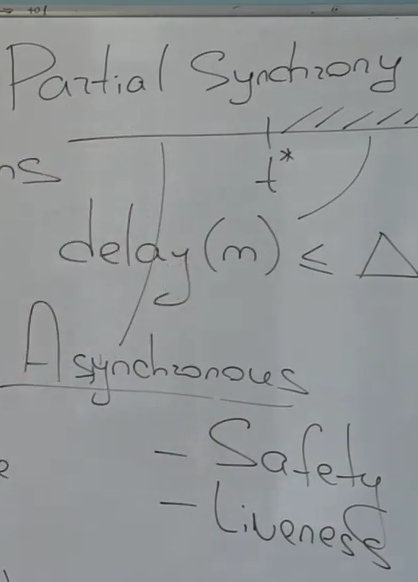 Partial Synchrony
ns
t*
delay(m) ≤ Δ
Asynchronous
- Safety
- Liveness